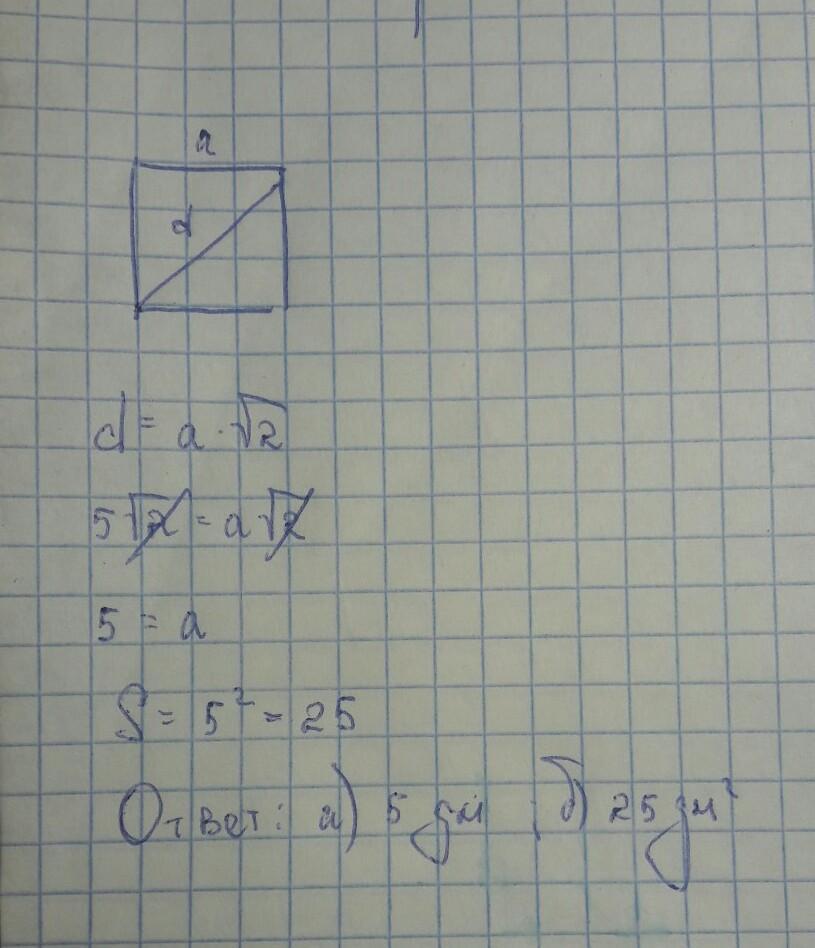 a
d
d = a · √2
5√2 = a√2
5 = a
S = 5² = 25
Ответ: а) 5 дм ; б) 25 дм²